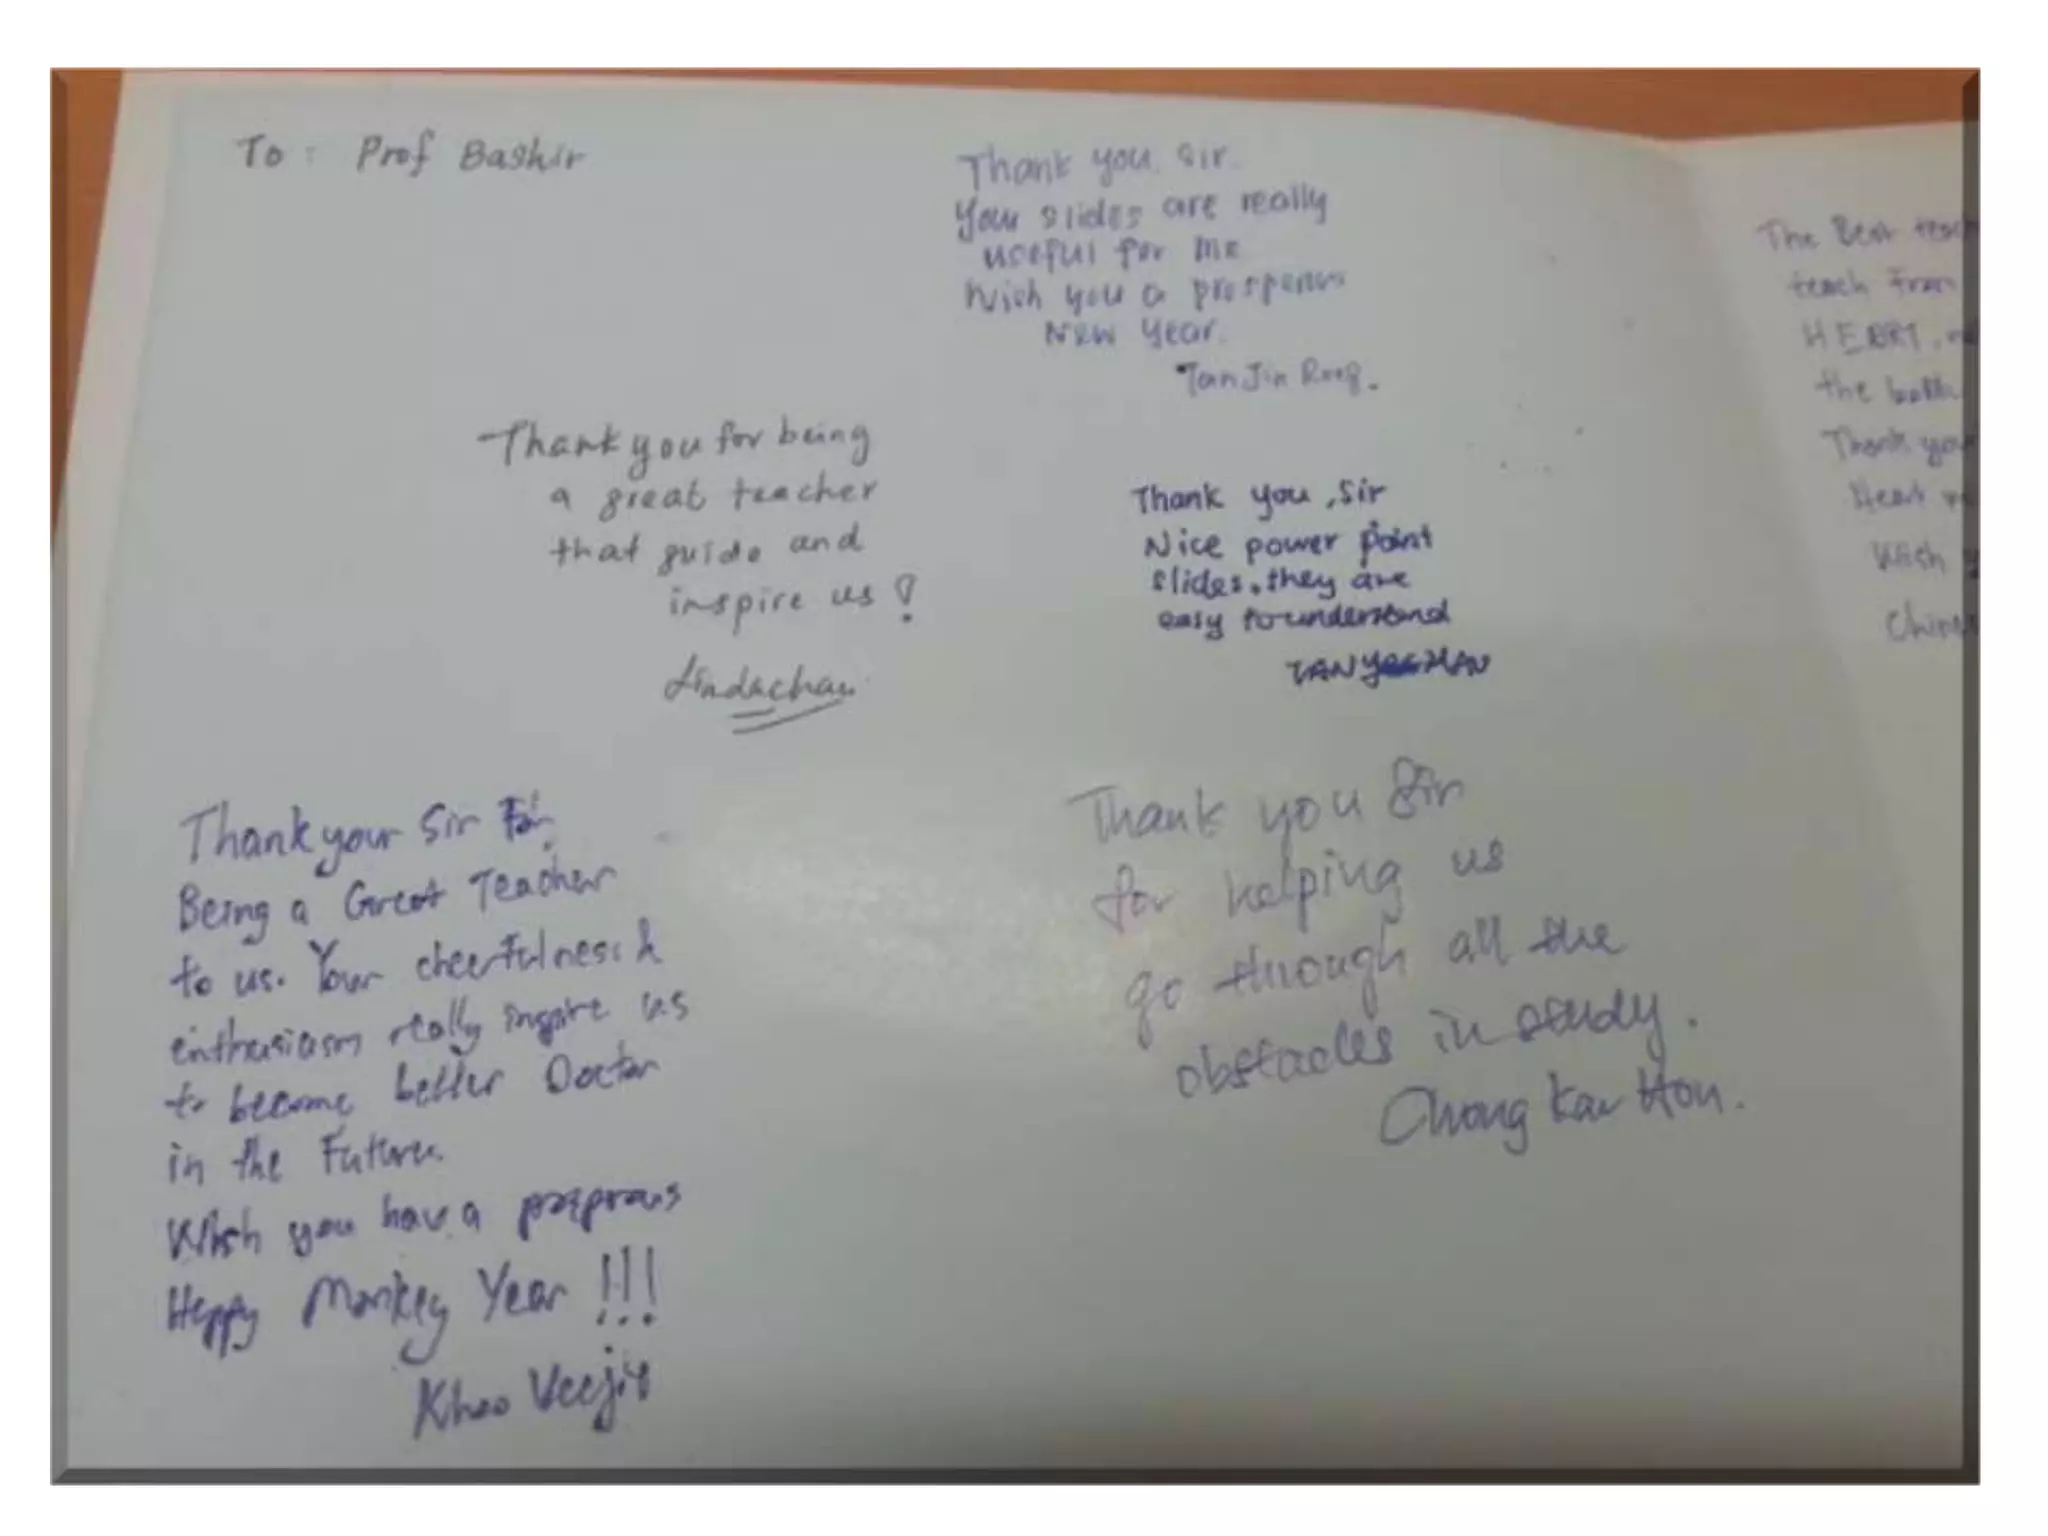 To : Prof Bashir
Thank you, Sir.
Your slides are really
useful for me
Wish you a prosperous
New Year.
Tan Jin
Thank you for being
a great teacher
that guide and
inspire us !
Linda chau
Thank you, Sir
Nice power point
slides, they are
easy to understand
TAN
Thank your Sir For
Being a Great Teacher
to us. Your cheerfulness &
enthusiasm really inspire us
to become better Doctor
in the Future.
Wish you have a
Happy Monkey Year !!!
Khoo Veejie
Thank you Sir
for helping us
go through all the
obstacles in study.
Chong Kar Hon.
The Best
teach From
HEART,
the
Thank you
Heart
Wish